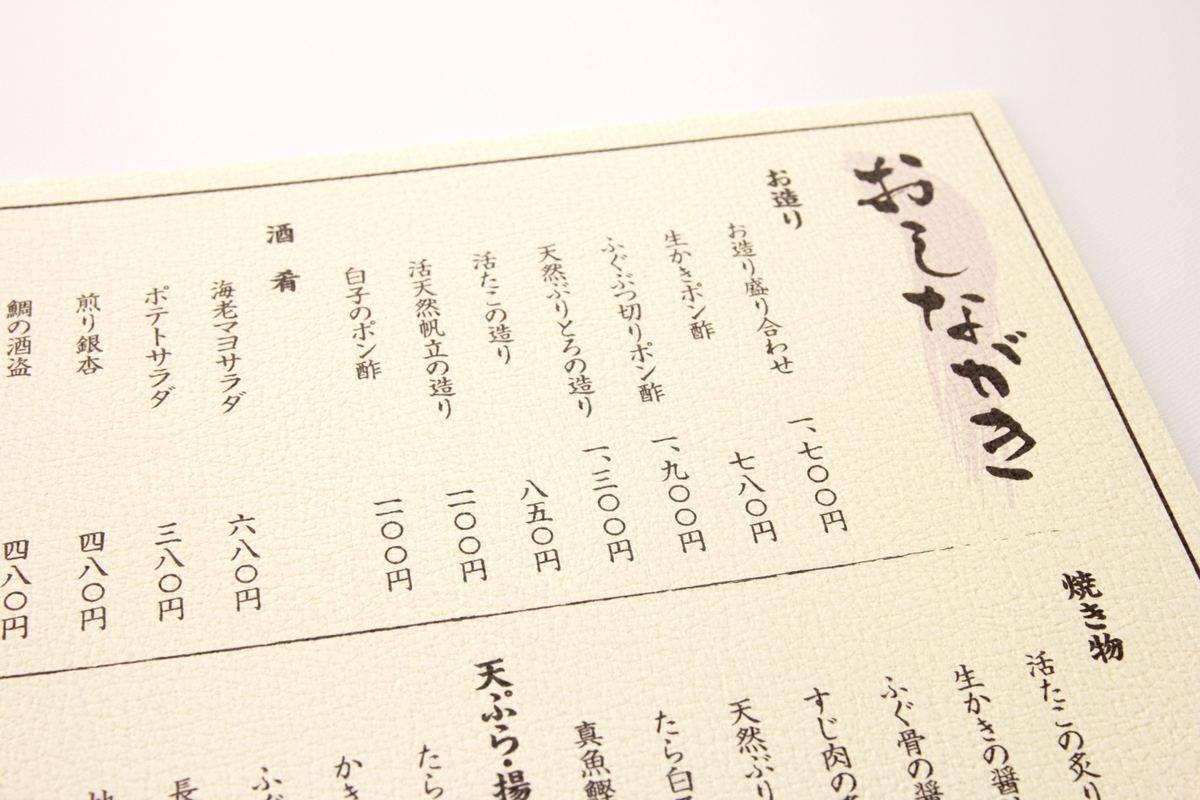 おしながき
お造り
お造り盛り合わせ 一、七〇〇円
生かきポン酢 七八〇円
ふぐぶつ切りポン酢 一、九〇〇円
天然ぶりとろの造り 一、三〇〇円
活たこの造り 八五〇円
活天然帆立の造り 一〇〇円
白子のポン酢 一〇〇円
酒肴
海老マヨサラダ 六八〇円
ポテトサラダ 三八〇円
煎り銀杏 四八〇円
鯛の酒盗 四八〇円
焼き物
活たこの炙り
生かきの醤
ふぐ骨の醤
すじ肉の
天然ぶり
たら白子
真魚鰹
天ぷら・揚
たら
かき
ふぐ
長